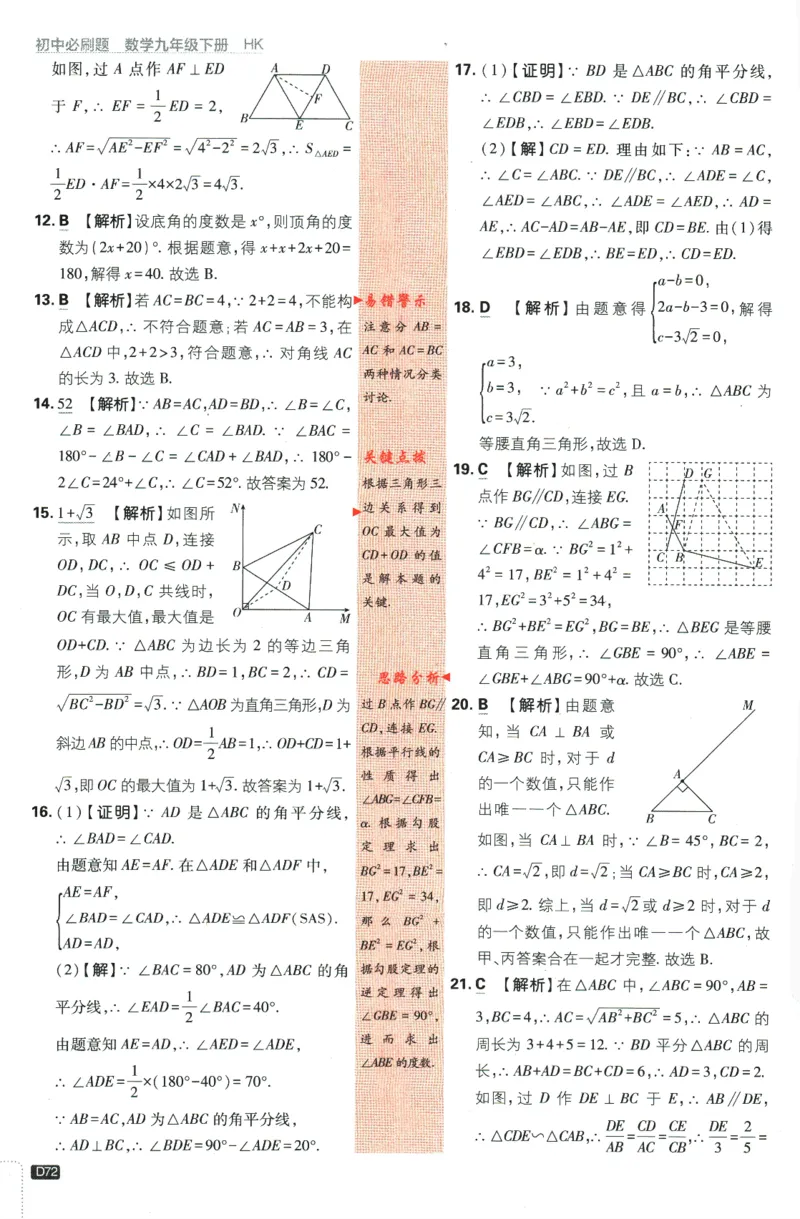 初中必刷题 数学九年级下册 HK
如图,过 A 点作 AF⊥ED
于 F,∴ EF = 1/2 ED = 2,
A D F B E C
∴ AF=√(AE²-EF²)=√(4²-2²)=2√3,∴ S△AED=
1/2 ED·AF=1/2×4×2√3=4√3.
12. B 【解析】设底角的度数是 x°,则顶角的度
数为(2x+20)°. 根据题意,得 x+x+2x+20=
180,解得 x=40. 故选 B.
13. B 【解析】若 AC=BC=4,∵ 2+2=4,不能构
成△ACD,∴ 不符合题意;若 AC=AB=3,在
△ACD 中,2+2>3,符合题意,∴ 对角线 AC
的长为 3. 故选 B.
14. 52 【解析】∵ AB=AC,AD=BD,∴ ∠B=∠C,
∠B = ∠BAD,∴ ∠C = ∠BAD. ∵ ∠BAC =
180°-∠B-∠C=∠CAD+∠BAD,∴ 180°-
2∠C=24°+∠C,∴ ∠C=52°. 故答案为 52.
15. 1+√3 【解析】如图所
示,取 AB 中点 D,连接
OD,DC,∴ OC ≤ OD +
DC,当 O,D,C 共线时,
OC 有最大值,最大值是
N C B D O A M
OD+CD. ∵ △ABC 为边长为 2 的等边三角
形,D 为 AB 中点,∴ BD=1,BC=2,∴ CD=
√(BC²-BD²)=√3. ∵ △AOB为直角三角形,D 为
斜边AB的中点,∴ OD=1/2 AB=1,∴ OD+CD=1+
√3,即 OC 的最大值为 1+√3. 故答案为 1+√3.
16. (1)【证明】∵ AD 是 △ABC 的角平分线,
∴ ∠BAD=∠CAD.
由题意知 AE=AF. 在△ADE 和△ADF 中,
{AE=AF,
∠BAD=∠CAD,∴ △ADE≌△ADF(SAS).
AD=AD,
(2)【解】∵ ∠BAC=80°,AD 为△ABC 的角
平分线,∴ ∠EAD=1/2∠BAC=40°.
由题意知 AE=AD,∴ ∠AED=∠ADE,
∴ ∠ADE=1/2×(180°-40°)=70°.
∵ AB=AC,AD 为△ABC 的角平分线,
∴ AD⊥BC,∴ ∠BDE=90°-∠ADE=20°.
易错警示
注意分 AB =
AC 和 AC=BC
两种情况分类
讨论.
关键点拨
根据三角形三
边关系得到
OC 最大值为
CD+OD 的值
是解本题的
关键.
思路分析
过 B 点作 BG//
CD,连接 EG.
根据平行线的
性质得出
∠ABG=∠CFB=
α. 根据勾股
定理求出
BG²=17,BE²=
17,EG² = 34,
那么 BG² +
BE² = EG²,根
据勾股定理的
逆定理得出
∠GBE = 90°,
进而求出
∠ABE 的度数.
17. (1)【证明】∵ BD 是 △ABC 的角平分线,
∴ ∠CBD=∠EBD. ∵ DE//BC,∴ ∠CBD=
∠EDB,∴ ∠EBD=∠EDB.
(2)【解】CD=ED. 理由如下:∵ AB=AC,
∴ ∠C=∠ABC. ∵ DE//BC,∴ ∠ADE=∠C,
∠AED=∠ABC,∴ ∠ADE=∠AED,∴ AD=
AE,∴ AC-AD=AB-AE,即 CD=BE. 由(1)得
∠EBD=∠EDB,∴ BE=ED,∴ CD=ED.
{a-b=0,
18. D 【解析】由题意得 2a-b-3=0,解得
c-3√2=0,
{a=3,
b=3, ∵ a²+b²=c²,且 a=b,∴ △ABC 为
c=3√2.
等腰直角三角形,故选 D.
19. C 【解析】如图,过 B
点作 BG//CD,连接 EG.
∵ BG//CD,∴ ∠ABG=
∠CFB=α. ∵ BG²=1²+
4²=17,BE²=1²+4²=
17,EG²=3²+5²=34,
D G A F C B E
∴ BG²+BE²=EG²,BG=BE,∴ △BEG 是等腰
直角三角形,∴ ∠GBE = 90°,∴ ∠ABE =
∠GBE+∠ABG=90°+α. 故选 C.
20. B 【解析】由题意
知,当 CA⊥BA 或
CA≥BC 时,对于 d
的一个数值,只能作
出唯一一个△ABC.
M A B C
如图,当 CA⊥BA 时,∵ ∠B=45°,BC=2,
∴ CA=√2,即 d=√2;当 CA≥BC 时,CA≥2,
即 d≥2. 综上,当 d=√2 或 d≥2 时,对于 d
的一个数值,只能作出唯一一个△ABC,故
甲、丙答案合在一起才完整. 故选 B.
21. C 【解析】在△ABC 中,∠ABC=90°,AB=
3,BC=4,∴ AC=√(AB²+BC²)=5,∴ △ABC 的
周长为 3+4+5=12. ∵ BD 平分△ABC 的周
长,∴ AB+AD=BC+CD=6,∴ AD=3,CD=2.
如图,过 D 作 DE⊥BC 于 E,∴ AB//DE,
∴ △CDE∽△CAB,∴ DE/AB=CD/AC=CE/CB,∴ DE/3=2/5=
D72